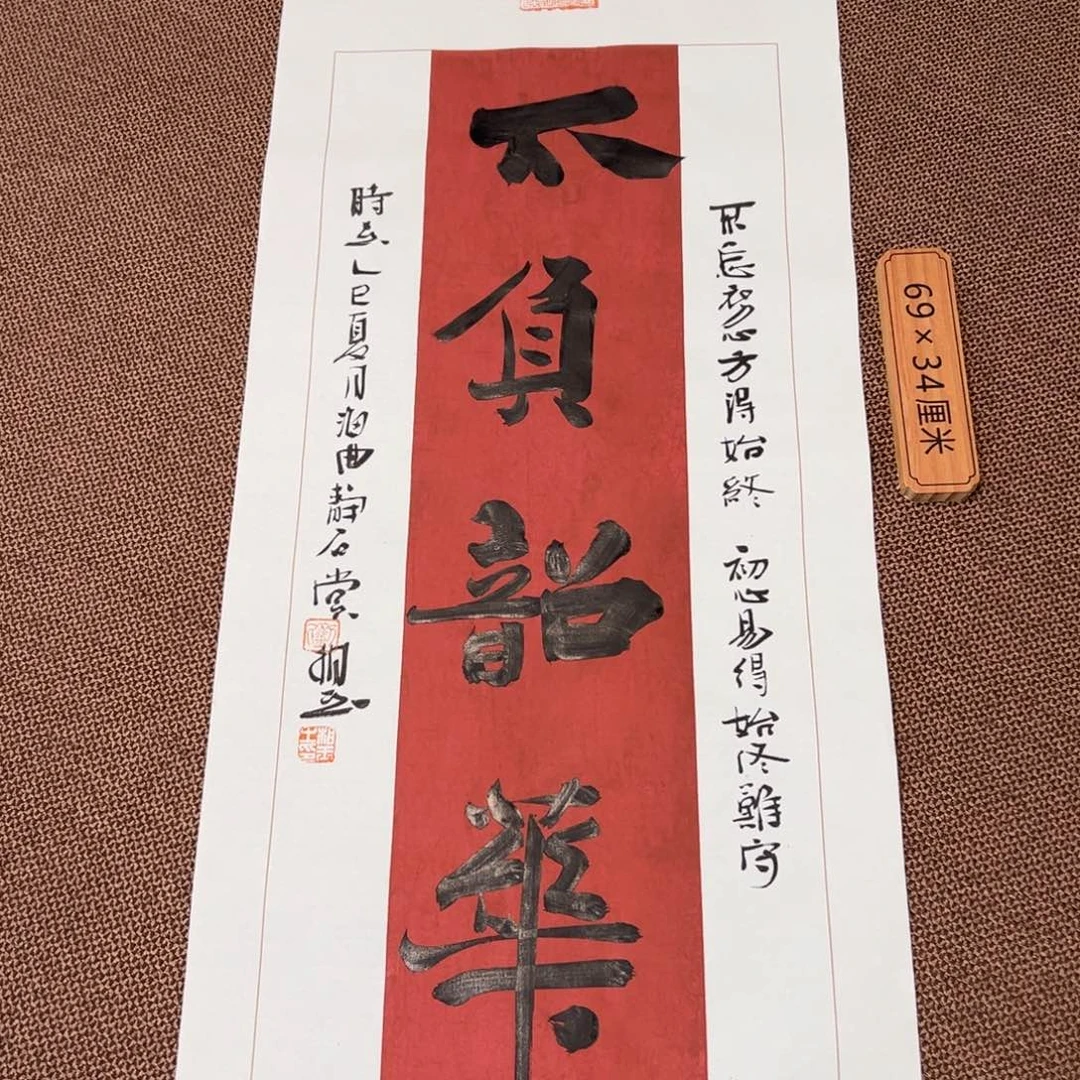 不忘初心方得始終 初心易得始終難守
不負韶華
時在乙巳夏月海曲靜石堂
69×34厘米